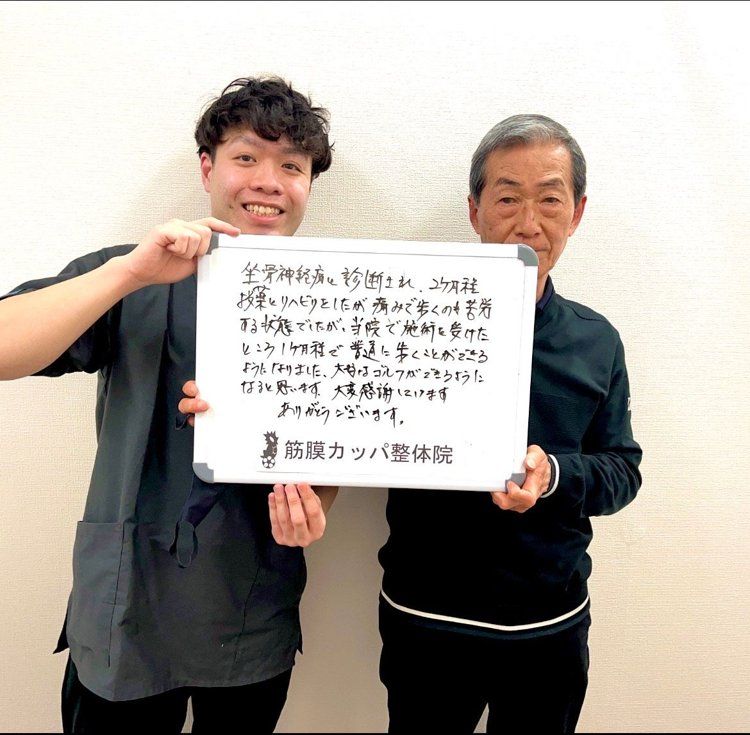 坐骨神経痛と診断され、2ケ月程
投薬とリハビリをしたが痛みで歩くのも苦労
する状態でしたが、当院で施術を受けた
ところ1ケ月程で普通に歩くことができる
ようになりました、大好きなゴルフができるように
なると思います、大変感謝しています
ありがとうございます。
筋膜カッパ整体院